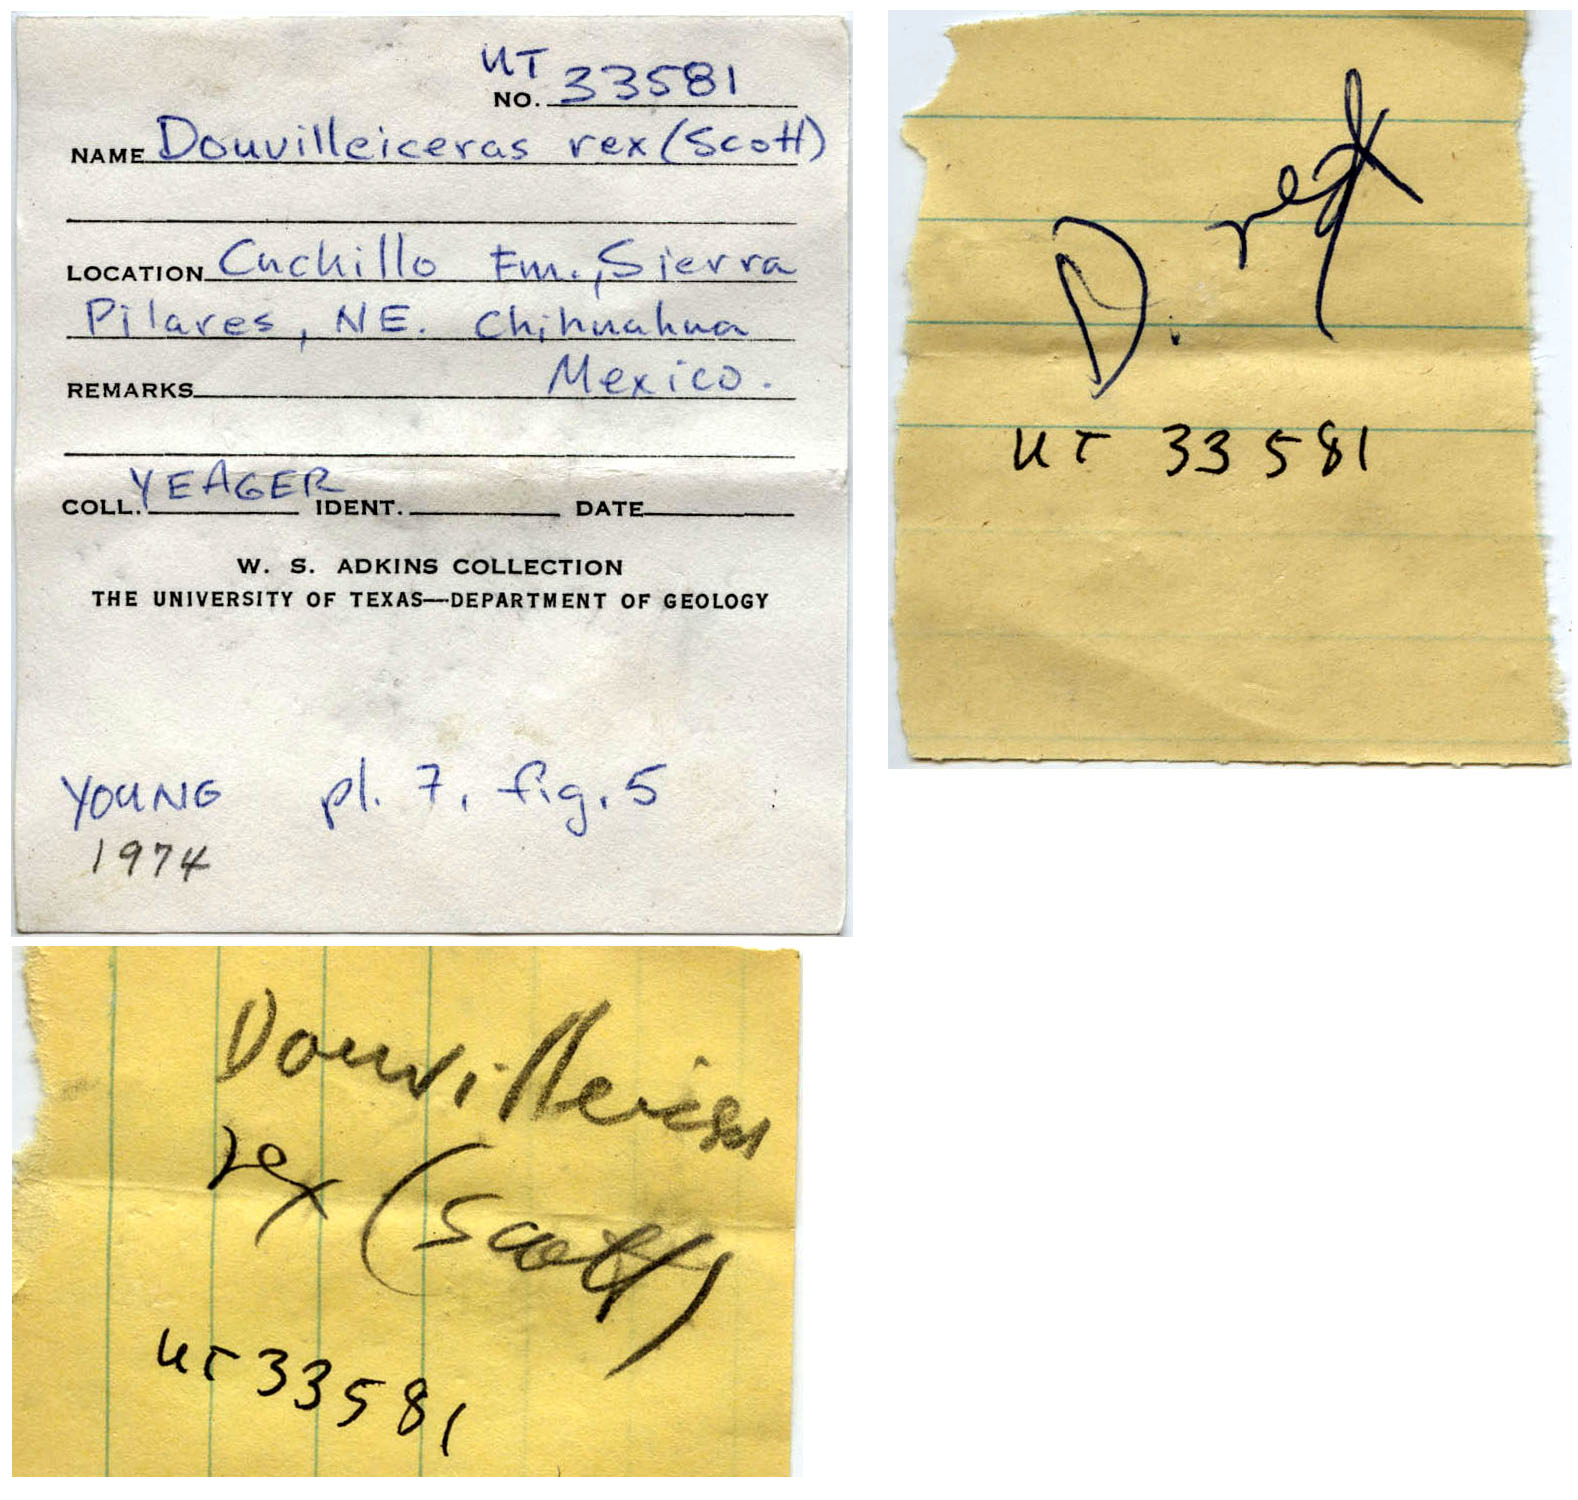 UT
NO. 33581
NAME Douvilleiceras rex (Scott)
LOCATION Cuchillo Fm., Sierra
Pilares, NE. Chihuahua
REMARKS Mexico.
COLL. YEAGER IDENT. DATE
W. S. ADKINS COLLECTION
THE UNIVERSITY OF TEXAS—DEPARTMENT OF GEOLOGY
YOUNG pl. 7, fig. 5
1974
D. rex
UT 33581
rex (Scott)
UT 33581